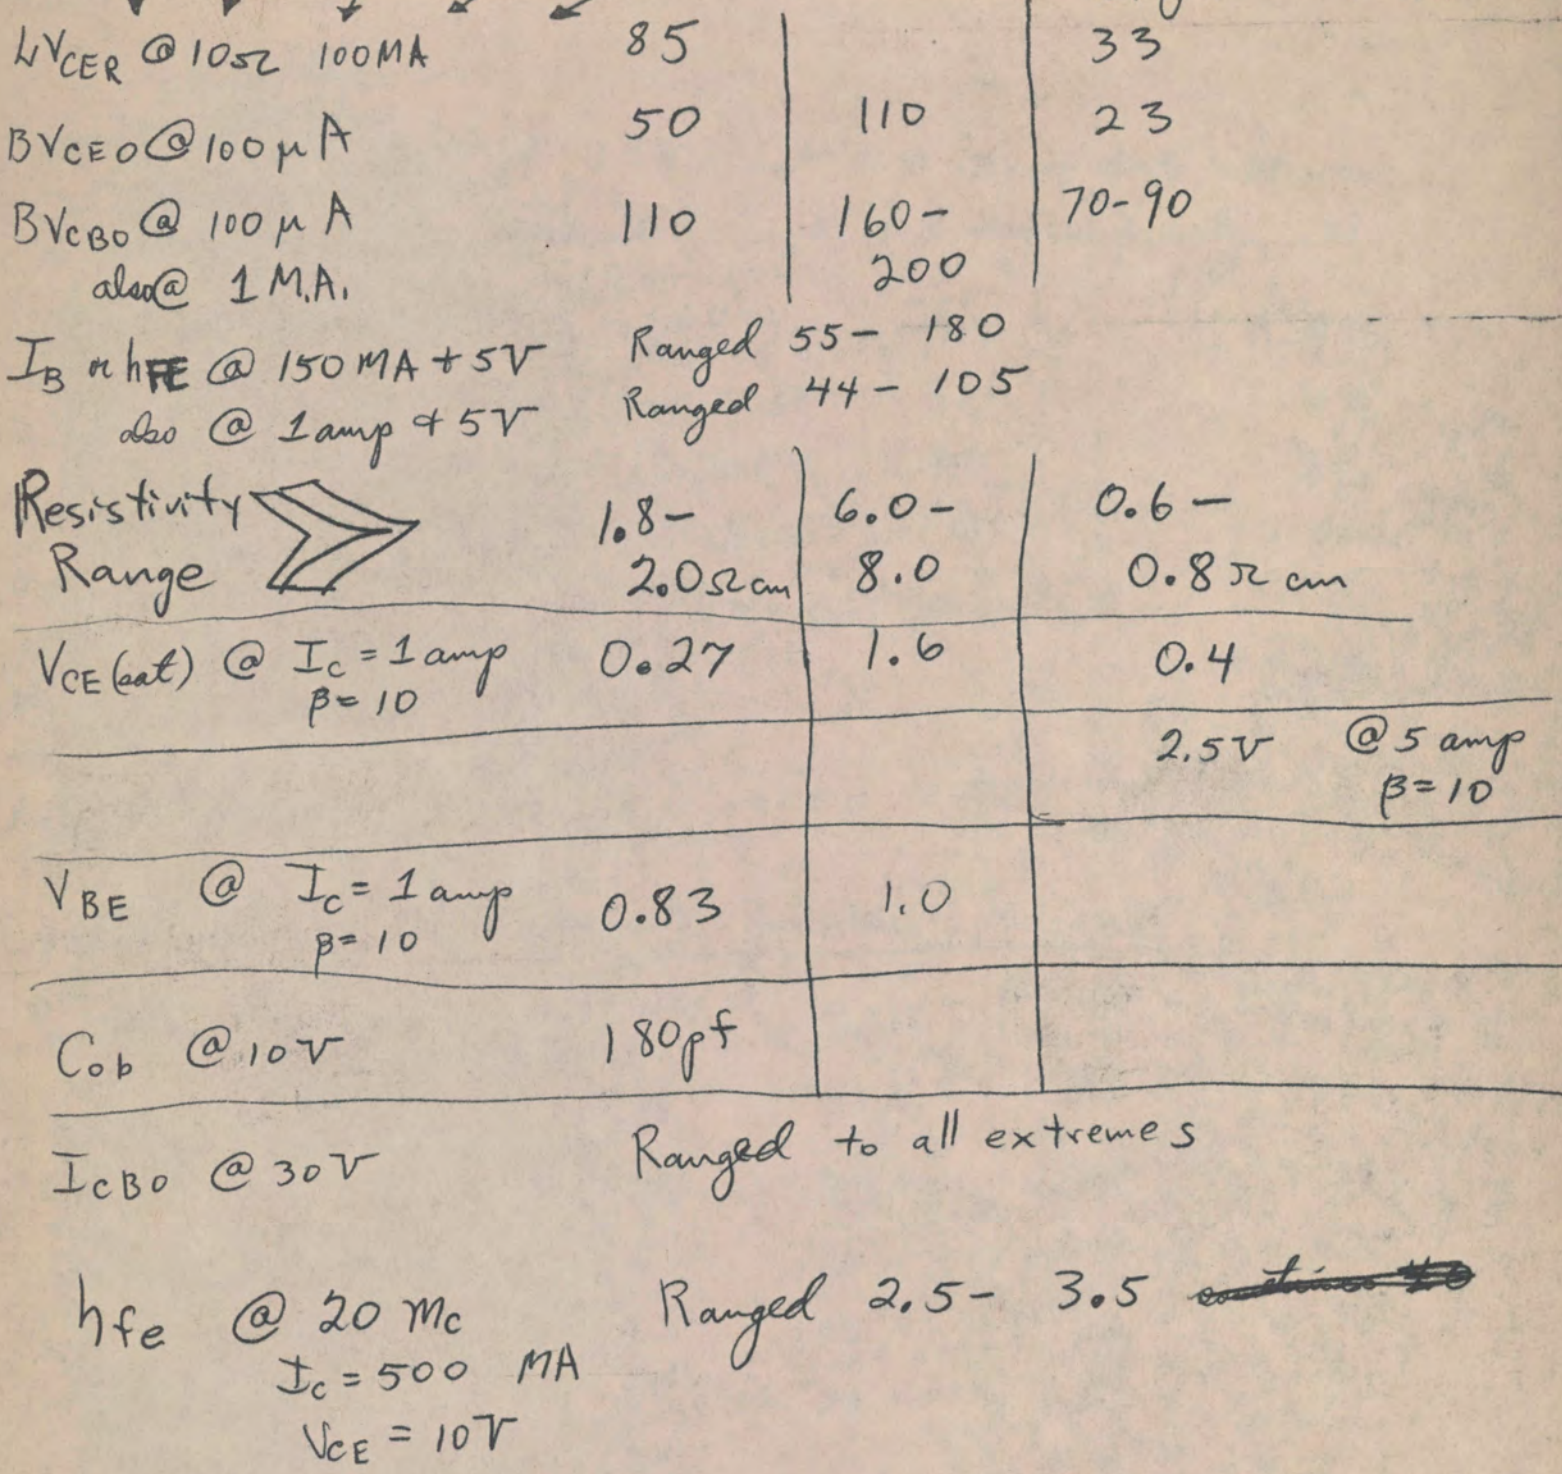 LVCER @ 10Ω 100MA 85 33
BVCEO @ 100 μA 50 110 23
BVCBO @ 100 μA 110 160- 70-90
also @ 1 M.A. 200
IB or hFE @ 150 MA + 5V Ranged 55- 180
also @ 1 amp + 5V Ranged 44- 105
Resistivity 1.8- 6.0- 0.6-
Range 2.0 Ω cm 8.0 0.8 Ω cm
VCE (sat) @ Ic = 1 amp 0.27 1.6 0.4
β = 10
2.5V @ 5 amp
β = 10
VBE @ Ic = 1 amp 0.83 1.0
β = 10
Cob @ 10V 180pf
ICBO @ 30V Ranged to all extremes
hfe @ 20 Mc Ranged 2.5- 3.5
Ic = 500 MA
VCE = 10V